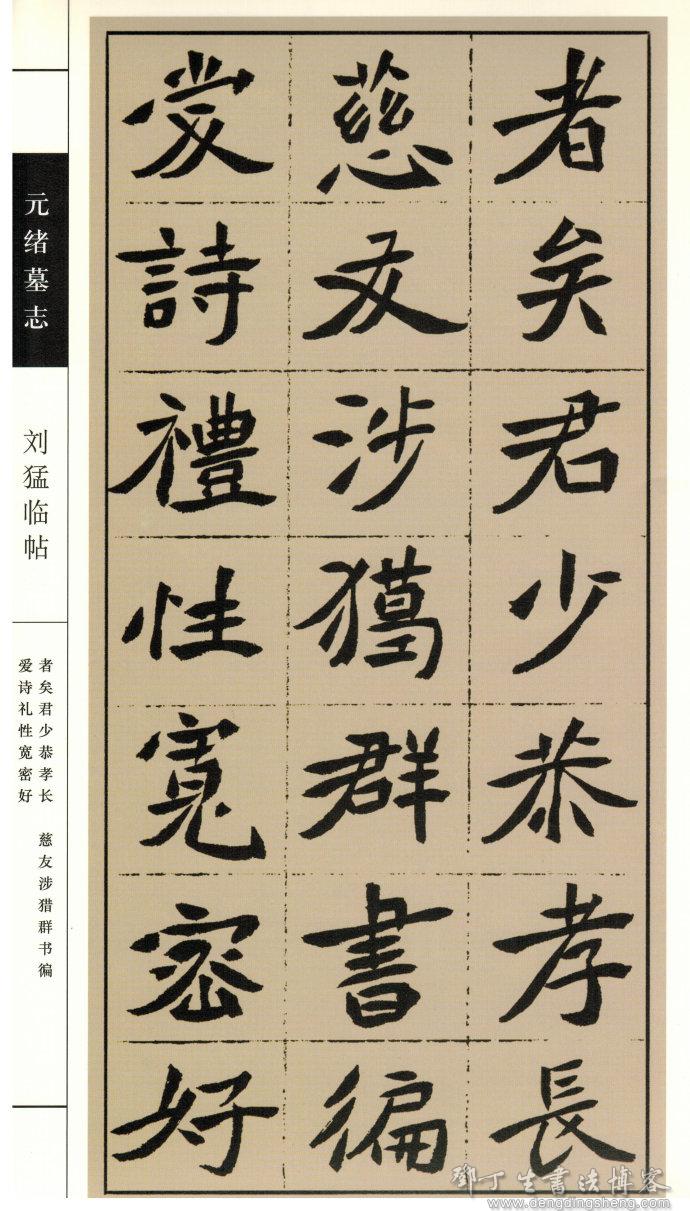 者矣君少恭孝長
慈友涉獵群書徧
愛詩禮性寬密好
元绪墓志
刘猛临帖
者矣君少恭孝长 慈友涉猎群书徧
爱诗礼性宽密好
邓丁生書法博客
www.dengdingsheng.com